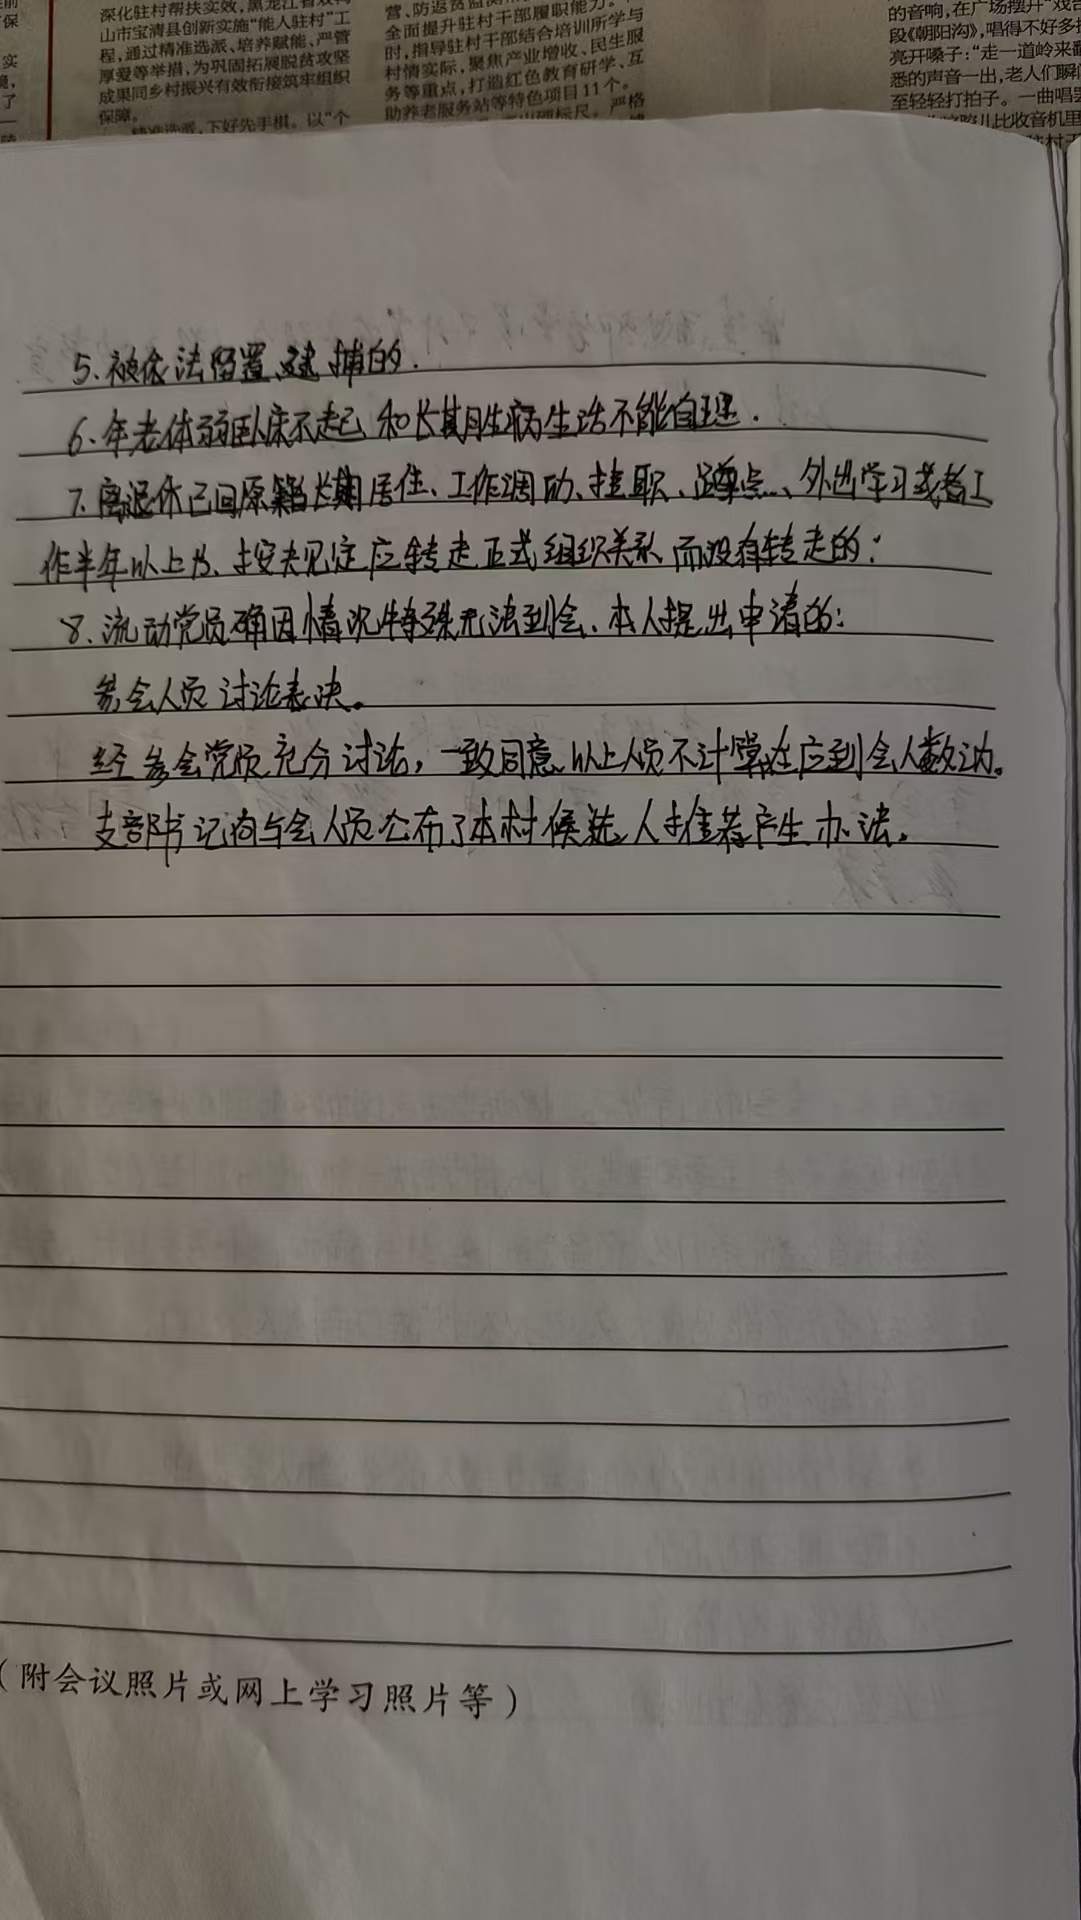 深化驻村帮扶实效，黑龙江省双鸭
山市宝清县创新实施“能人驻村”工
程，通过精准选派、培养赋能、严管
厚爱等举措，为巩固拓展脱贫攻坚
成果同乡村振兴有效衔接筑牢组织
保障。
精准选派，下好先手棋。以“个
营、防返贫监测
全面提升驻村干部履职能力。
时，指导驻村干部结合培训所学与
村情实际，聚焦产业增收、民生服
务等重点，打造红色教育研学、互
助养老服务站等特色项目11个。
严格
的音响，在广场摆开“戏台
段《朝阳沟》，唱得不好多
亮开嗓子：“走一道岭来翻
悉的声音一出，老人们瞬间
至轻轻打拍子。一曲唱罢
儿比收音机里
5、被依法留置、逮捕的.
6、年老体弱卧床不起和长期生病生活不能自理.
7、离退休已回原籍长期居住、工作调动、挂职、蹲点、外出学习或者工
作半年以上为、按规定应转走正式组织关系而没有转走的；
8、流动党员确因情况特殊无法到会、本人提出申请的；
参会人员讨论表决。
经参会党员充分讨论，一致同意以上人员不计算在应到会人数之内。
支部书记向与会人员公布了本村候选人推荐产生办法。
（附会议照片或网上学习照片等）